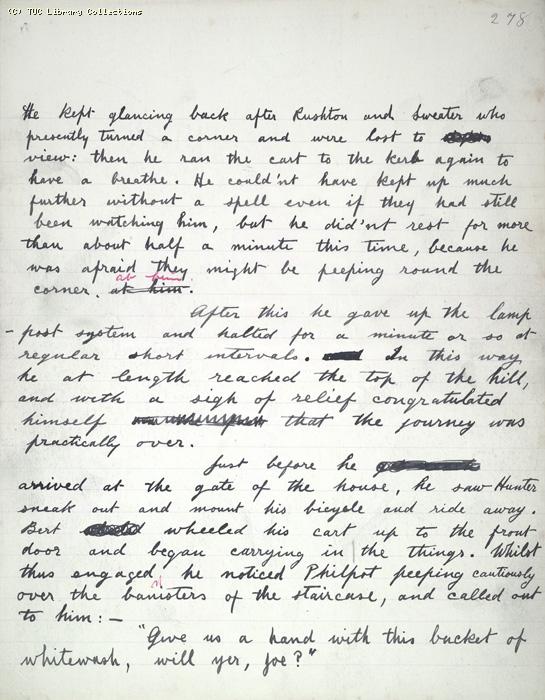 (C) TUC Library Collections
278
He kept glancing back after Rushton and Sweater who
presently turned a corner and were lost to
view: then he ran the cart to the kerb again to
have a breathe. He could'nt have kept up much
further without a spell even if they had still
been watching him, but he did'nt rest for more
than about half a minute this time, because he
was afraid they might be peeping round the
at him
corner. at him.
After this he gave up the lamp
-post system and halted for a minute or so at
regular short intervals. In this way
he at length reached the top of the hill,
and with a sigh of relief congratulated
himself that the journey was
practically over.
Just before he
arrived at the gate of the house, he saw Hunter
sneak out and mount his bicycle and ride away.
Bert wheeled his cart up to the front
door and began carrying in the things. Whilst
thus engaged he noticed Philpot peeping cautiously
over the banisters of the staircase, and called out
to him: —
"Give us a hand with this bucket of
whitewash, will yer, Joe?"